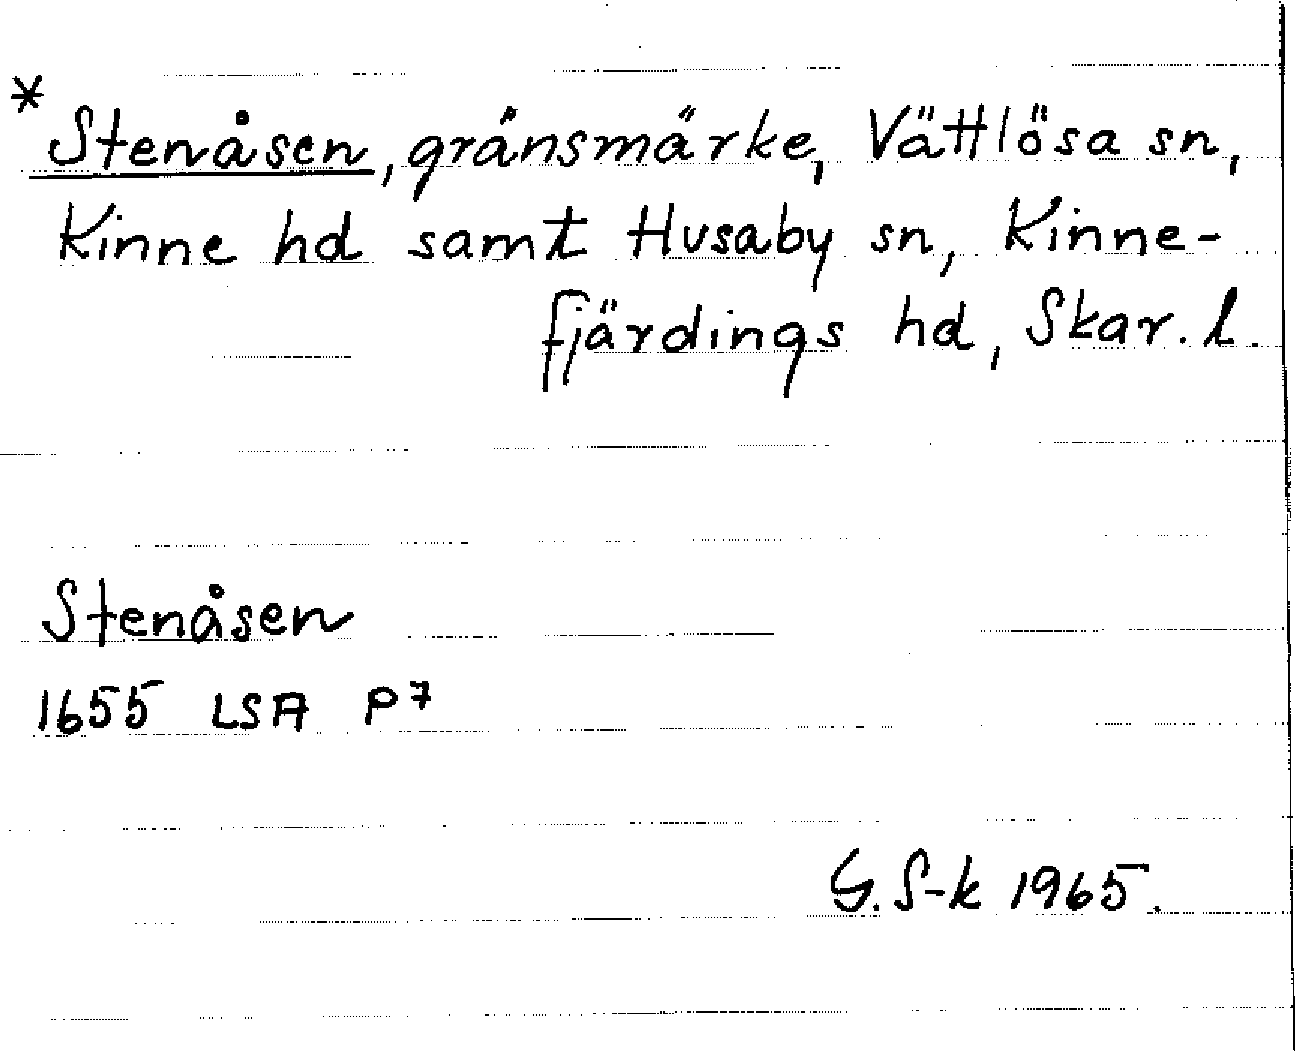 * Stenåsen, gränsmärke, Vättlösa sn,
Kinne hd samt Husaby sn, Kinne-
fjärdings hd, Skar. l.
Stenåsen
1655 LSA P7
G. S-k 1965.